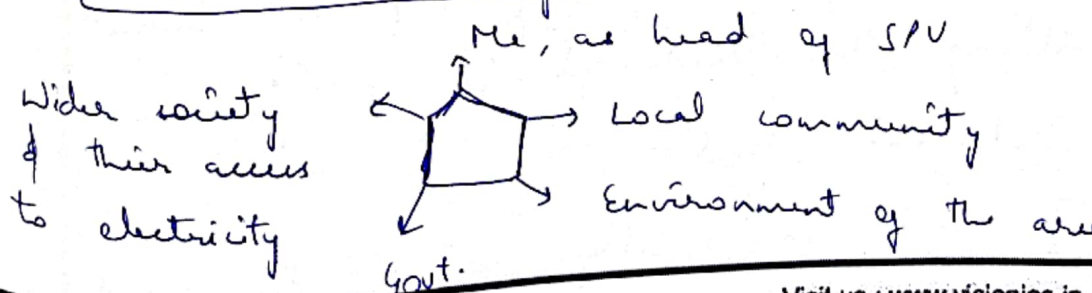 Me, as head of SPV
Wider society
& their access
to electricity
Local community
Environment of the
Govt.